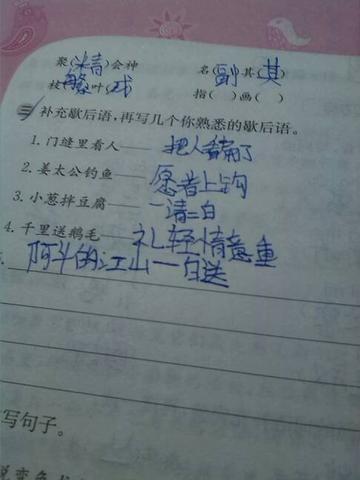 聚(精)会神 名(副)其(其)
枝(繁)叶(戍) 指( )画( )
三、补充歇后语,再写几个你熟悉的歇后语。
1.门缝里看人——把人看扁了
2.姜太公钓鱼——愿者上钩
3.小葱拌豆腐——一清二白
4.千里送鹅毛——礼轻情意重
5.阿斗的江山一白送
写句子。